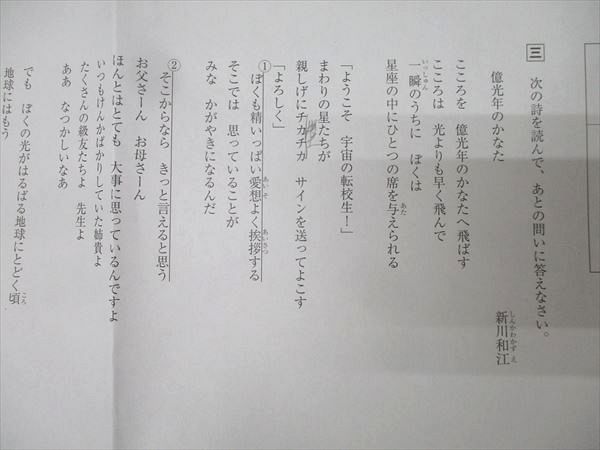 三 次の詩を読んで、あとの問いに答えなさい。
億光年のかなた
新川和江
しんかわかずえ
こころを 億光年のかなたへ飛ばす
こころは 光よりも早く飛んで
一瞬のうちに ぼくは
いっしゅん
星座の中にひとつの席を与えられる
あた
「ようこそ 宇宙の転校生!」
まわりの星たちが
親しげにチカチカ サインを送ってよこす
「よろしく」
①ぼくも精いっぱい愛想よく挨拶する
あいそ
あいさつ
そこでは 思っていることが
みな かがやきになるんだ
②そこからなら きっと言えると思う
お父さーん お母さーん
ほんとはとても 大事に思っているんですよ
いつもけんかばかりしていた姉貴よ
たくさんの級友たちよ 先生よ
ああ なつかしいなあ
でも ぼくの光がはるばる地球にとどく頃
ころ
地球にはもう